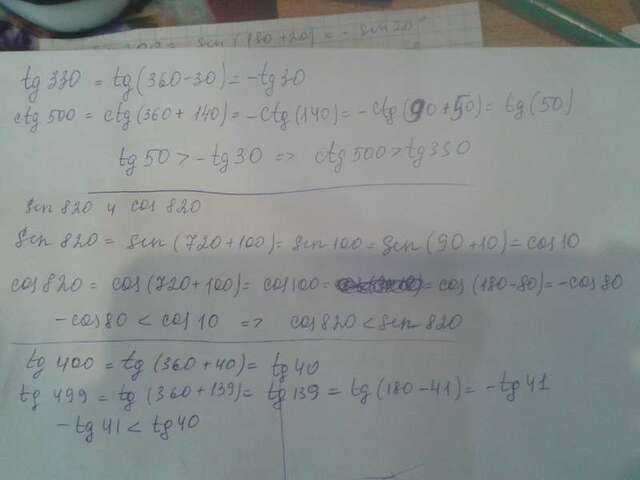 sin (180+20) = - sin 20°
tg 330 = tg (360-30) = -tg 30
ctg 500 = ctg (360 + 140) = -ctg (140) = -ctg (90 + 50) = tg (50)
tg 50 > -tg 30 => ctg 500 > tg 330
sin 820 и cos 820
sin 820 = sin (720+100) = sin 100 = sin (90 + 10) = cos 10
cos 820 = cos (720+100) = cos 100 = = cos (180-80) = -cos 80
-cos 80 < cos 10 => cos 820 < sin 820
tg 400 = tg (360 + 40) = tg 40
tg 499 = tg (360 + 139) = tg 139 = tg (180 - 41) = -tg 41
-tg 41 < tg 40